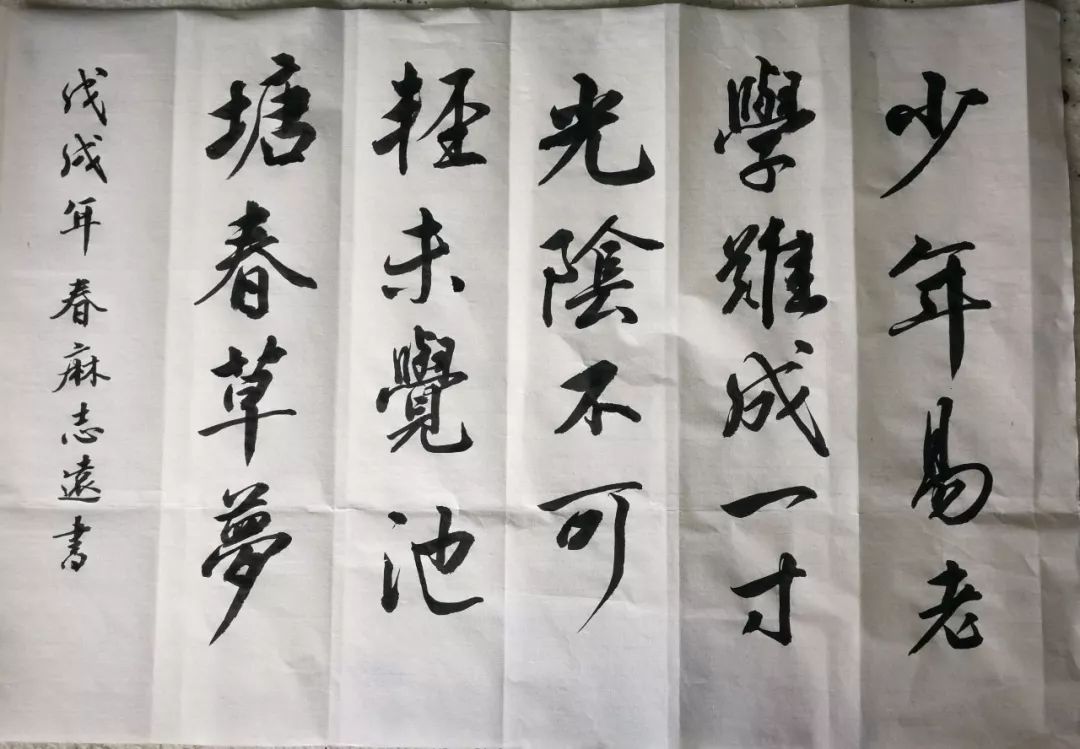 少年易老
學難成一寸
光陰不可
輕未覺池
塘春草夢
戊戌年春麻志遠書